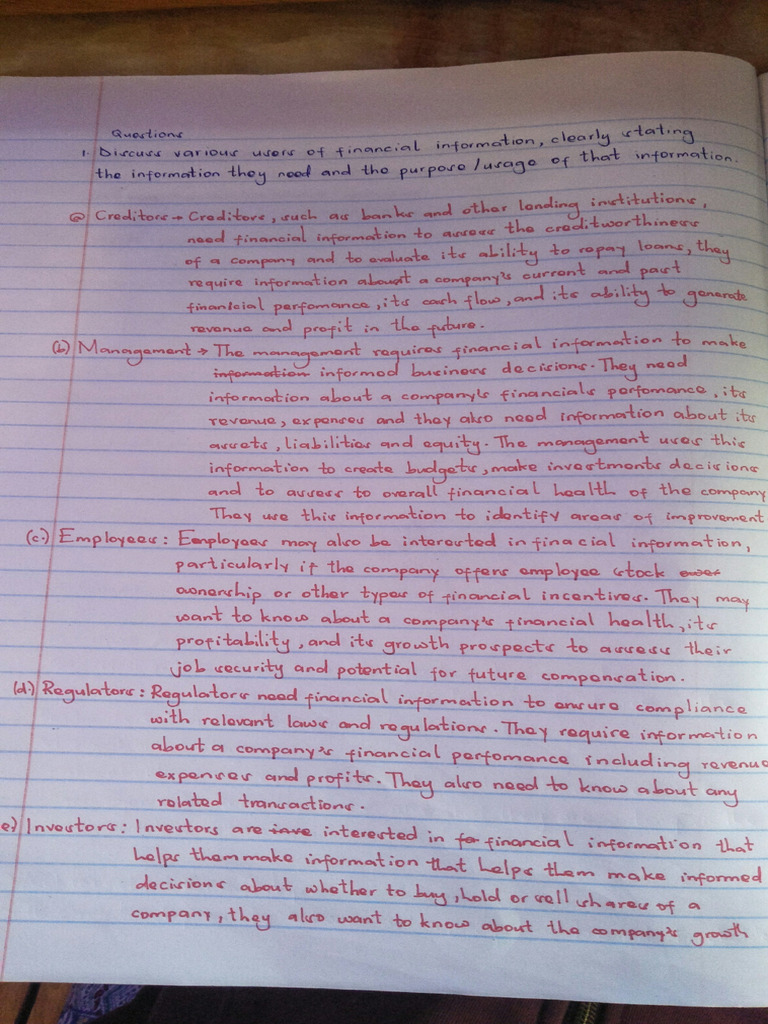 Questions
1. Discuss various users of financial information, clearly stating
the information they need and the purpose/usage of that information.
(a) Creditors → Creditors, such as banks and other lending institutions,
need financial information to assess the creditworthiness
of a company and to evaluate its ability to repay loans, they
require information about a company's current and past
financial perfomance, its cash flow, and its ability to generate
revenue and profit in the future.
(b) Management → The management requires financial information to make
information informed business decisions. They need
information about a company's financials perfomance, its
revenue, expenses and they also need information about its
assets, liabilities and equity. The management uses this
information to create budgets, make investments decisions
and to assess to overall financial health of the company
They use this information to identify areas of improvement
(c) Employees: Employees may also be interested in finacial information,
particularly if the company offers employee stock ower
ownership or other types of financial incentives. They may
want to know about a company's financial health, its
profitability, and its growth prospects to assess their
job security and potential for future compensation.
(d) Regulators: Regulators need financial information to ensure compliance
with relevant laws and regulations. They require information
about a company's financial perfomance including revenue
expenses and profits. They also need to know about any
related transactions.
e) Investors: Investors are inve interested in fo financial information that
helps them make information that helps them make informed
decisions about whether to buy, hold or sell shares of a
company, they also want to know about the company's growth